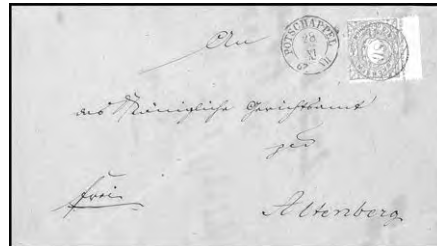 An
POTSCHAPPEL
28
XI
das Königliche Gerichtsamt
zu
frei
Altenberg